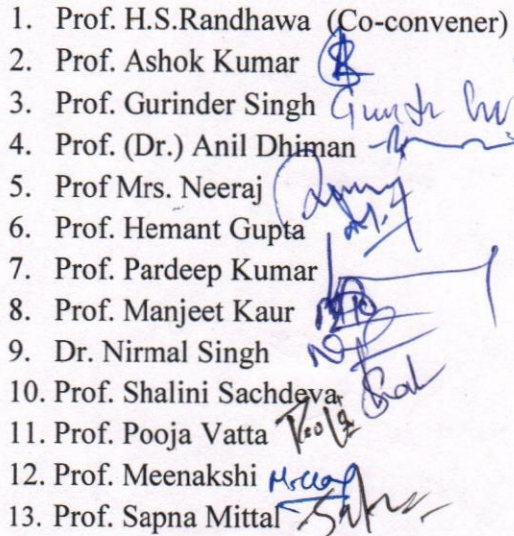 1. Prof. H.S.Randhawa (Co-convener)
2. Prof. Ashok Kumar
3. Prof. Gurinder Singh
4. Prof. (Dr.) Anil Dhiman
5. Prof Mrs. Neeraj
6. Prof. Hemant Gupta
7. Prof. Pardeep Kumar
8. Prof. Manjeet Kaur
9. Dr. Nirmal Singh
10. Prof. Shalini Sachdeva
11. Prof. Pooja Vatta
12. Prof. Meenakshi
13. Prof. Sapna Mittal